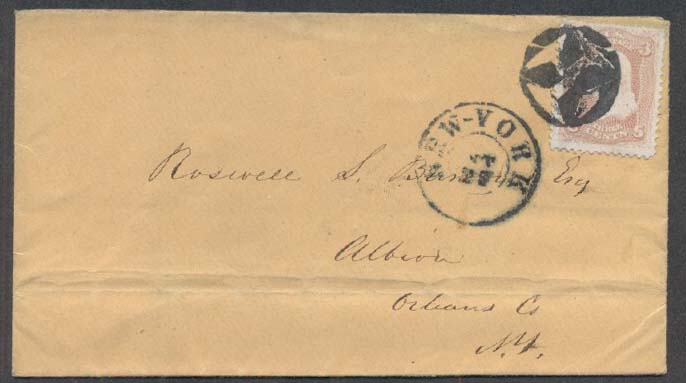 3
NEW-YORK
28
CENTS
Roswell S. Esq
Albion
Orleans Co
N.Y.